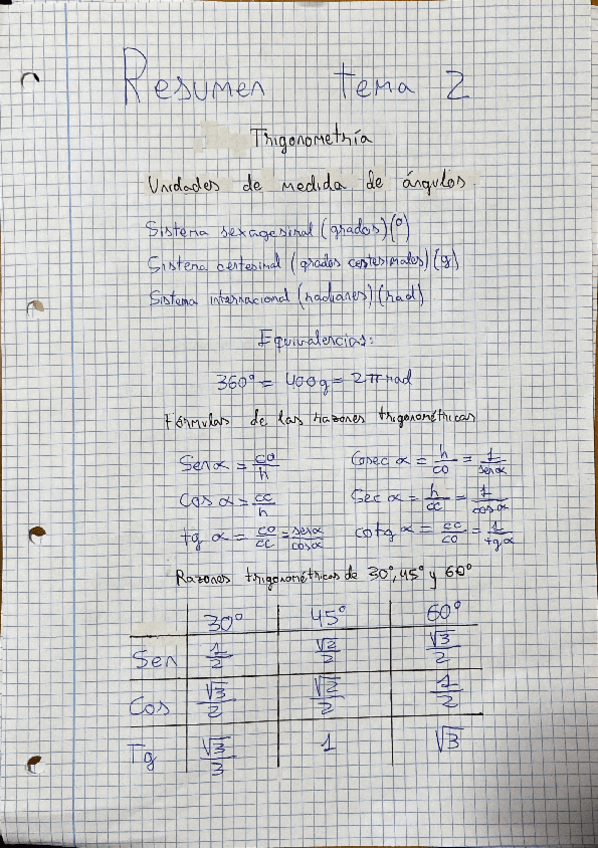 Resumen tema 2
Trigonometría
Unidades de medida de ángulos.
Sistema sexagesimal (grados)(º)
Sistema centesimal (grados centesimales)(g)
Sistema internacional (radianes)(rad)
Equivalencias:
360º = 400g = 2π rad
Fórmulas de las razones trigonométricas
Sen α = co/h   Cosec α = h/co = 1/sen α
Cos α = cc/h   Sec α = h/cc = 1/cos α
tg α = co/cc = sen α/cos α   cotg α = cc/co = 1/tg α
Razones trigonométricas de 30º, 45º y 60º
30º   45º   60º
Sen   1/2   √2/2   √3/2
Cos   √3/2   √2/2   1/2
Tg   √3/3   1   √3